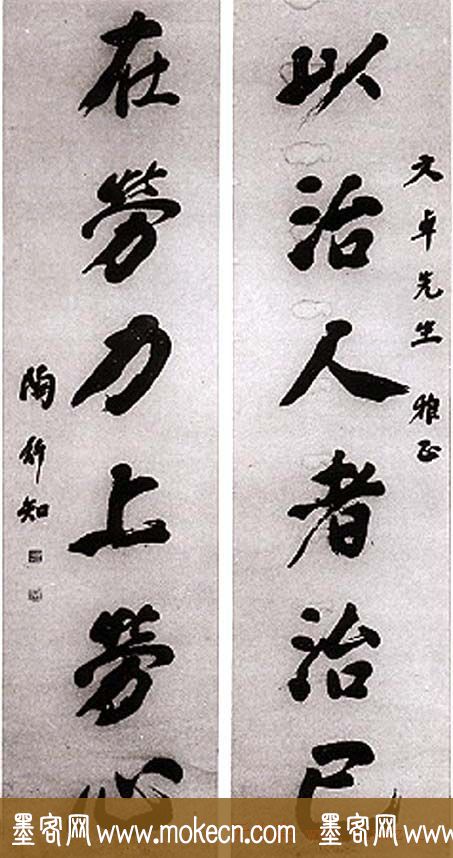 文卓先生 雅正
以治人者治己
在勞力上勞心
陶行知
墨客网 www.mokecn.com 墨客网 www.mokecn.com